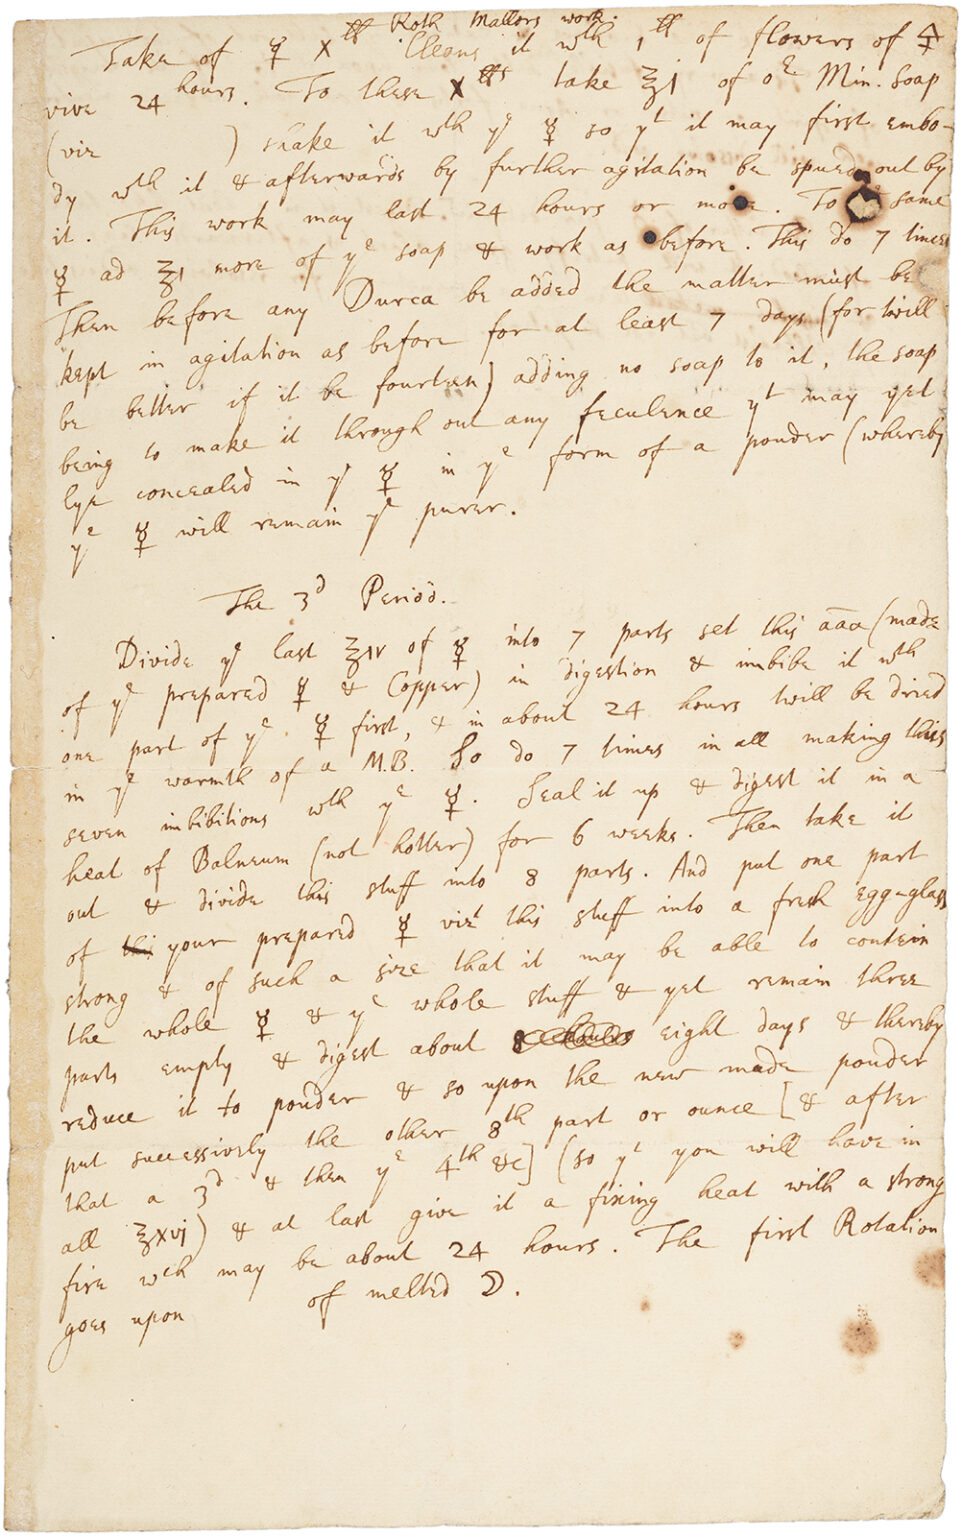 Roth Mallors work.
Take of ☿ X ℔ Cleans it wth 1 ℔ of flowers of 🜍
vive 24 hours. To these X ℔s take ℥1 of oe Min. Soap
(viz ) shake it wth ye ☿ so yt it may first embo-
dy wth it & afterwards by further agitation be spued out by
it. This work may last 24 hours or more. To same
☿ ad ℥1 more of ye soap & work as before. This do 7 times
Then before any Durca be added the matter must be
kept in agitation as before for at least 7 days (for twill
be better if it be fourteen) adding no soap to it, the soap
being to make it through out any feculence yt may yet
lye concealed in ye ☿ in ye form of a pouder (whereby
ye ☿ will remain ye purer.
The 3d Period.
Divide ye last ℥iv of ☿ into 7 parts set this aaa (made
of ye prepared ☿ & Copper) in digestion & imbibe it wth
one part of ye ☿ first, & in about 24 hours twill be dried
in ye warmth of a M.B. So do 7 times in all making this
seven imbibitions wth ye ☿. Seal it up & digest it in a
heat of Balneum (not hotter) for 6 weeks. Then take it
out & divide this stuff into 8 parts. And put one part
of thi your prepared ☿ vizt this stuff into a fresh egg-glass
strong & of such a size that it may be able to contein
the whole ☿ & ye whole stuff & yet remain three
parts empty & digest about 8 eight days & thereby
reduce it to pouder & so upon the new made pouder
put successively the other 8th part or ounce [& after
that a 3d & then ye 4th &c] (so yt you will have in
all ℥xvj) & at last give it a fixing heat with a strong
fire wch may be about 24 hours. The first Rotation
goes upon of melted ☽.